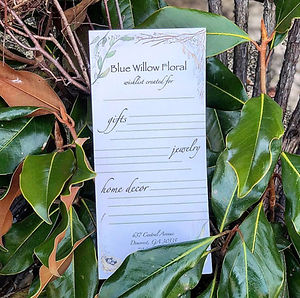 Blue Willow Floral
wishlist created for
gifts
jewelry
home decor
637 Central Avenue
Demorest, GA 30535